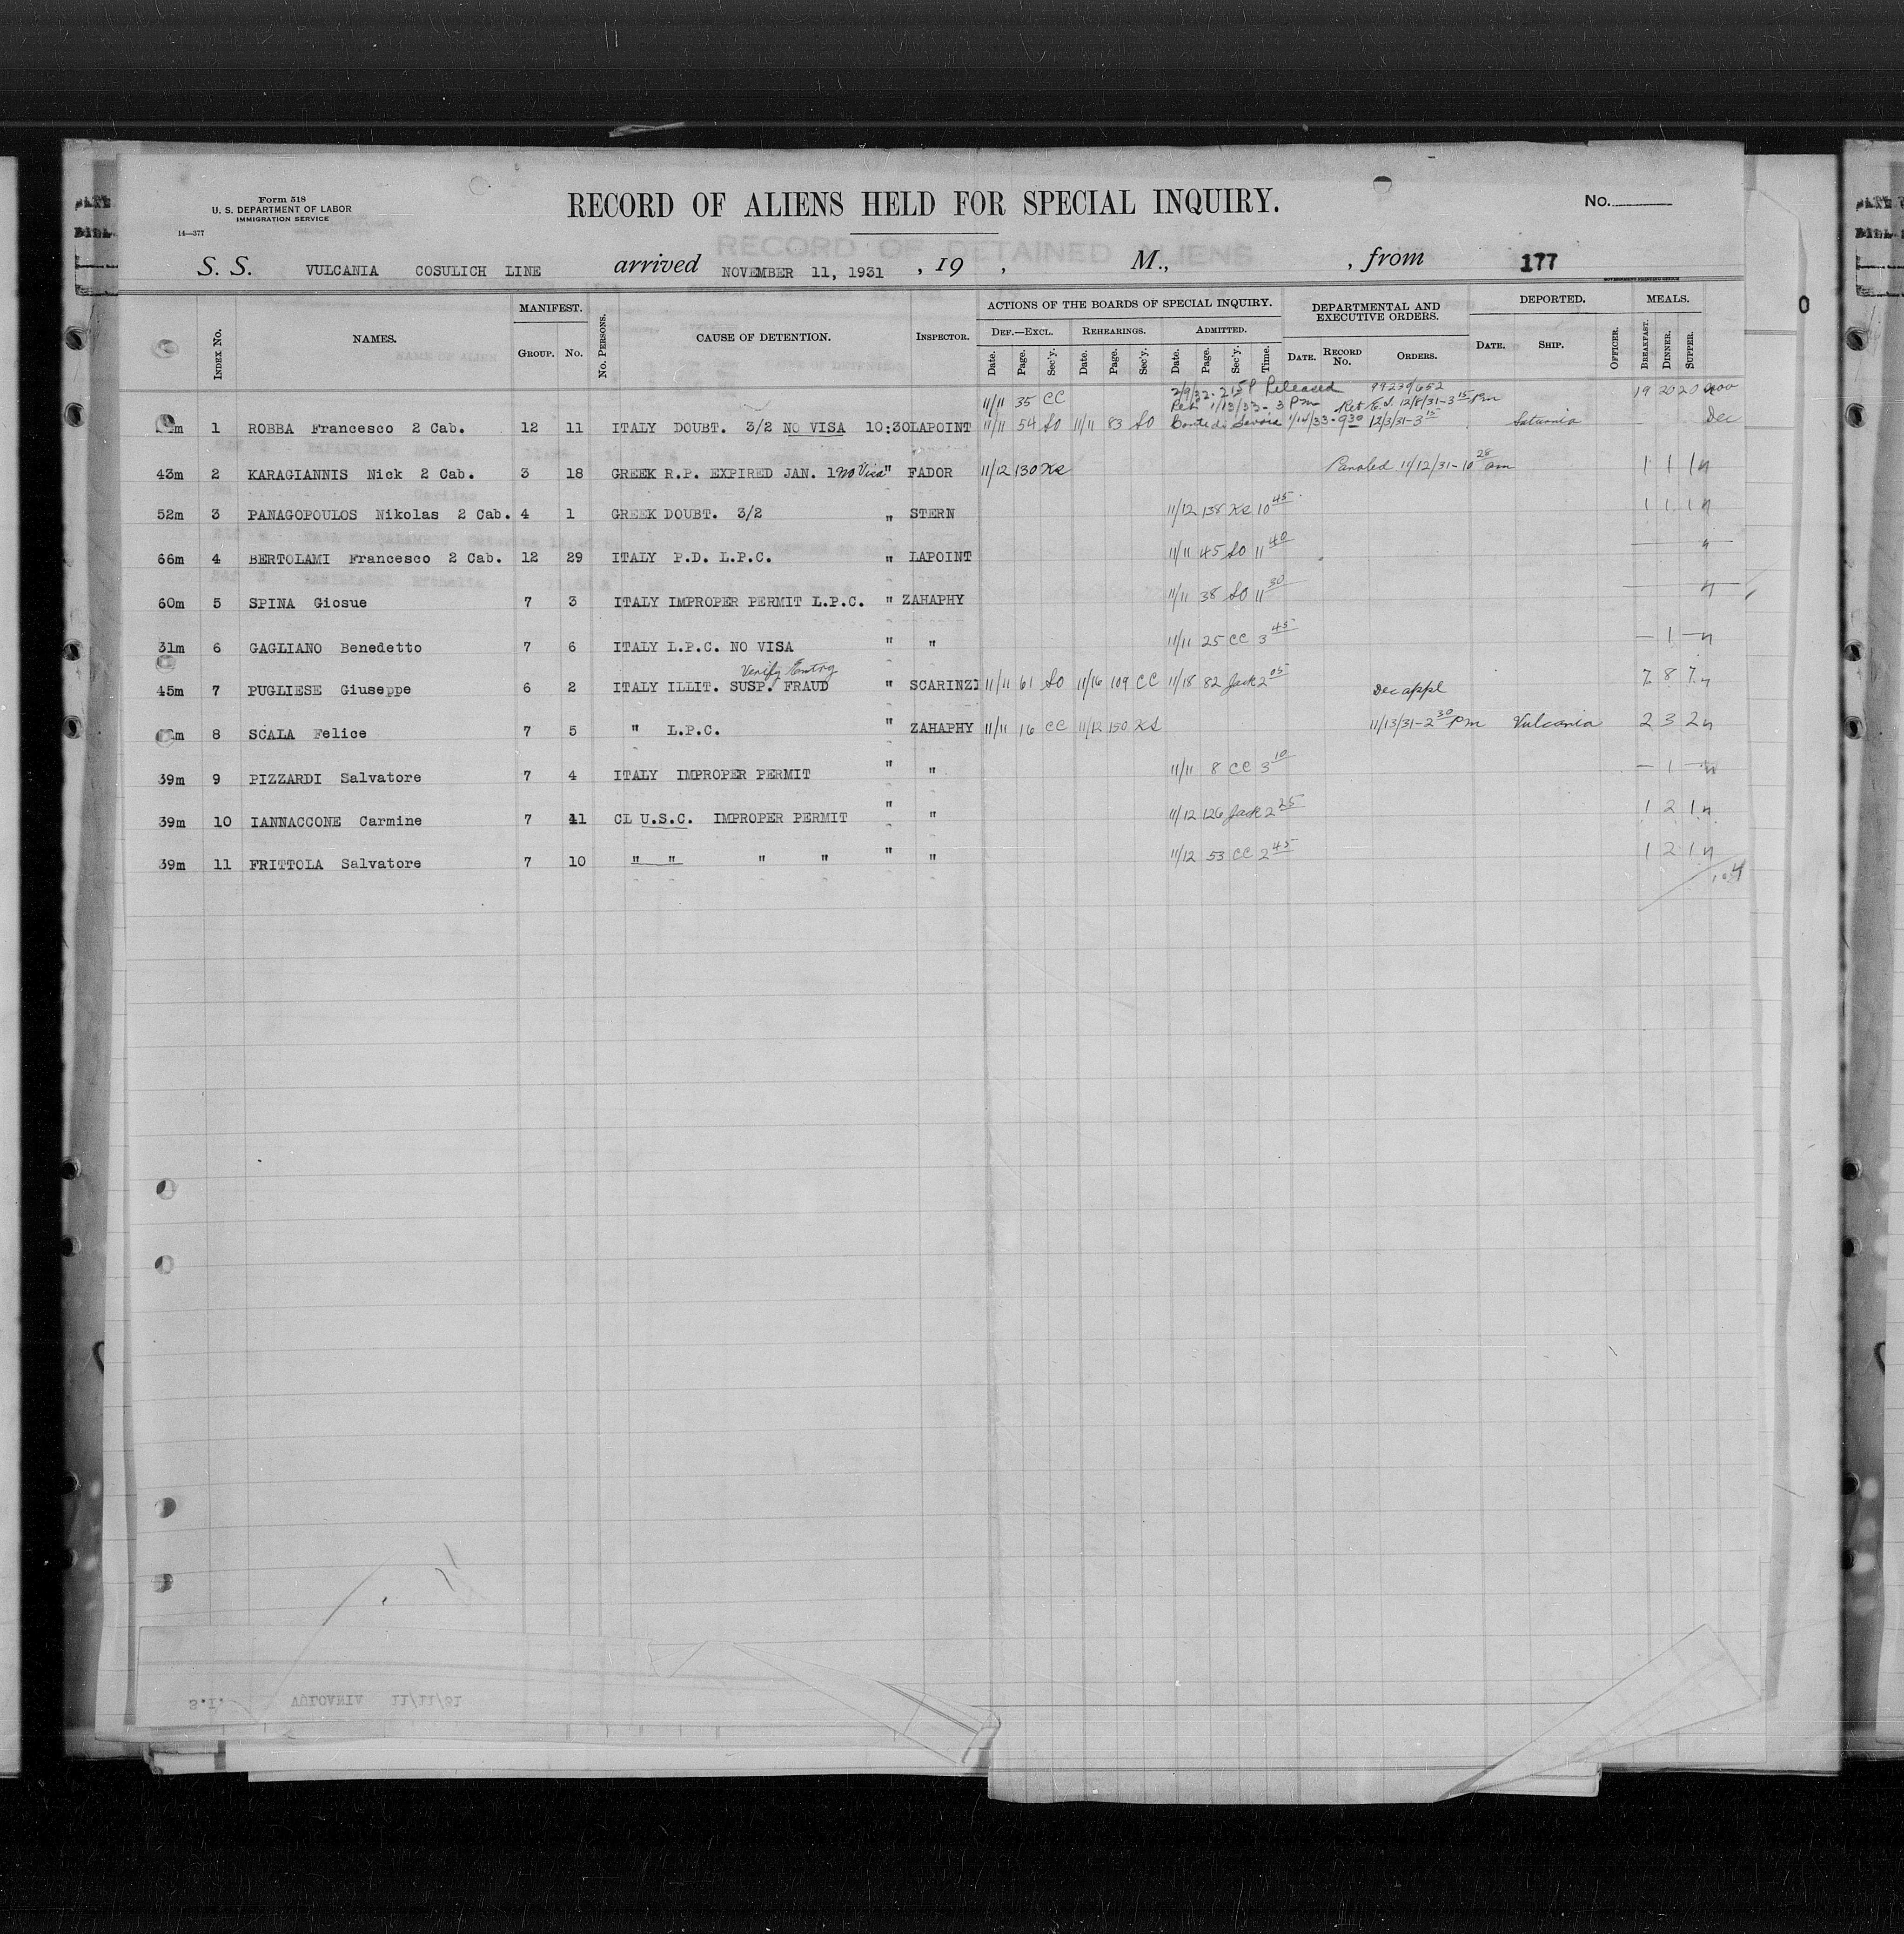 Form 518
U. S. DEPARTMENT OF LABOR
IMMIGRATION SERVICE
14—377
RECORD OF ALIENS HELD FOR SPECIAL INQUIRY.
No.
S. S. VULCANIA COSULICH LINE arrived NOVEMBER 11, 1931 , 19 , M., , from 177
GOVERNMENT PRINTING OFFICE
INDEX No. NAMES. MANIFEST. GROUP. No. No. PERSONS. CAUSE OF DETENTION. INSPECTOR. ACTIONS OF THE BOARDS OF SPECIAL INQUIRY. DEPARTMENTAL AND EXECUTIVE ORDERS. DEPORTED. MEALS.
DEF.—EXCL. REHEARINGS. ADMITTED.
Date. Page. Sec'y. Date. Page. Sec'y. Date. Page. Sec'y. Time. DATE. RECORD No. ORDERS. DATE. SHIP. OFFICER. BREAKFAST. DINNER. SUPPER.
11/11 35 CC 2/9/32 - 2 15 P Released 99239/652 19 20 20 Nov
Ret 1/13/33 - 3 Pm Ret E.I. 12/8/31 - 3 15 Pm
m 1 ROBBA Francesco 2 Cab. 12 11 ITALY DOUBT. 3/2 NO VISA 10:30 LAPOINT 11/11 54 SO 11/11 83 SO Conte di Savoia 1/14/33 - 9 30 12/3/31 - 3 15 Saturnia Dec
43m 2 KARAGIANNIS Nick 2 Cab. 3 18 GREEK R.P. EXPIRED JAN. 1 no Visa " FADOR 11/12 130 Ks Paroled 11/12/31 - 10 28 am 1 1 1 n
52m 3 PANAGOPOULOS Nikolas 2 Cab. 4 1 GREEK DOUBT. 3/2 " STERN 11/12 138 Ks 10 45 1 1 1 n
66m 4 BERTOLAMI Francesco 2 Cab. 12 29 ITALY P.D. L.P.C. " LAPOINT 11/11 45 SO 11 40 — n
60m 5 SPINA Giosue 7 3 ITALY IMPROPER PERMIT L.P.C. " ZAHAPHY 11/11 38 SO 11 30 — n
31m 6 GAGLIANO Benedetto 7 6 ITALY L.P.C. NO VISA " " 11/11 25 CC 3 45 — 1 — n
Verify Entry
45m 7 PUGLIESE Giuseppe 6 2 ITALY ILLIT. SUSP. FRAUD " SCARINZI 11/11 61 SO 11/16 109 CC 11/18 82 Jack 2 05 7 8 7 n
Dec appl
m 8 SCALA Felice 7 5 " L.P.C. " ZAHAPHY 11/11 16 CC 11/12 150 Ks 11/13/31 - 2 30 Pm Vulcania 2 3 2 n
39m 9 PIZZARDI Salvatore 7 4 ITALY IMPROPER PERMIT " " 11/11 8 CC 3 10 — 1 — n
39m 10 IANNACCONE Carmine 7 11 CL U.S.C. IMPROPER PERMIT " " 11/12 126 Jack 2 25 1 2 1 n
39m 11 FRITTOLA Salvatore 7 10 " " " " " " 11/12 53 CC 2 45 1 2 1 n
104
S.I. VULCANIA 11/11/31